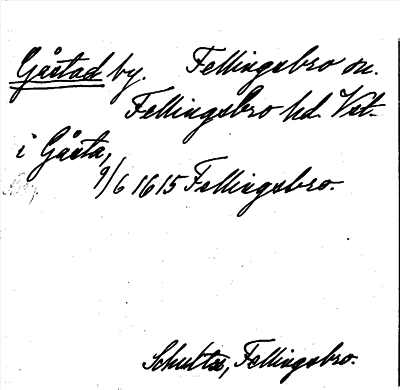 Gåstad by. Fellingsbro sn.
Fellingsbro hd. Vstm.
i Gåsta,
9/6 1615 Fellingsbro.
Schultze, Fellingsbro.